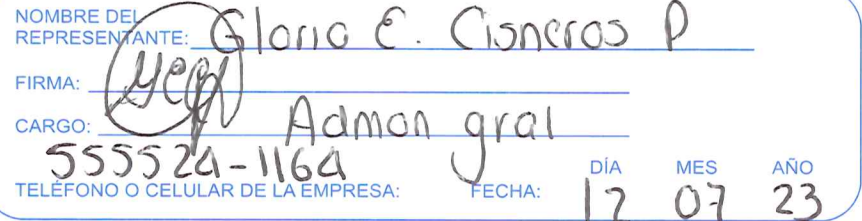 NOMBRE DEL
REPRESENTANTE: Gloria E. Cisneros P
FIRMA:
CARGO: Admon gral
555524-1164
DÍA MES AÑO
TELÉFONO O CELULAR DE LA EMPRESA: FECHA: 17 07 23